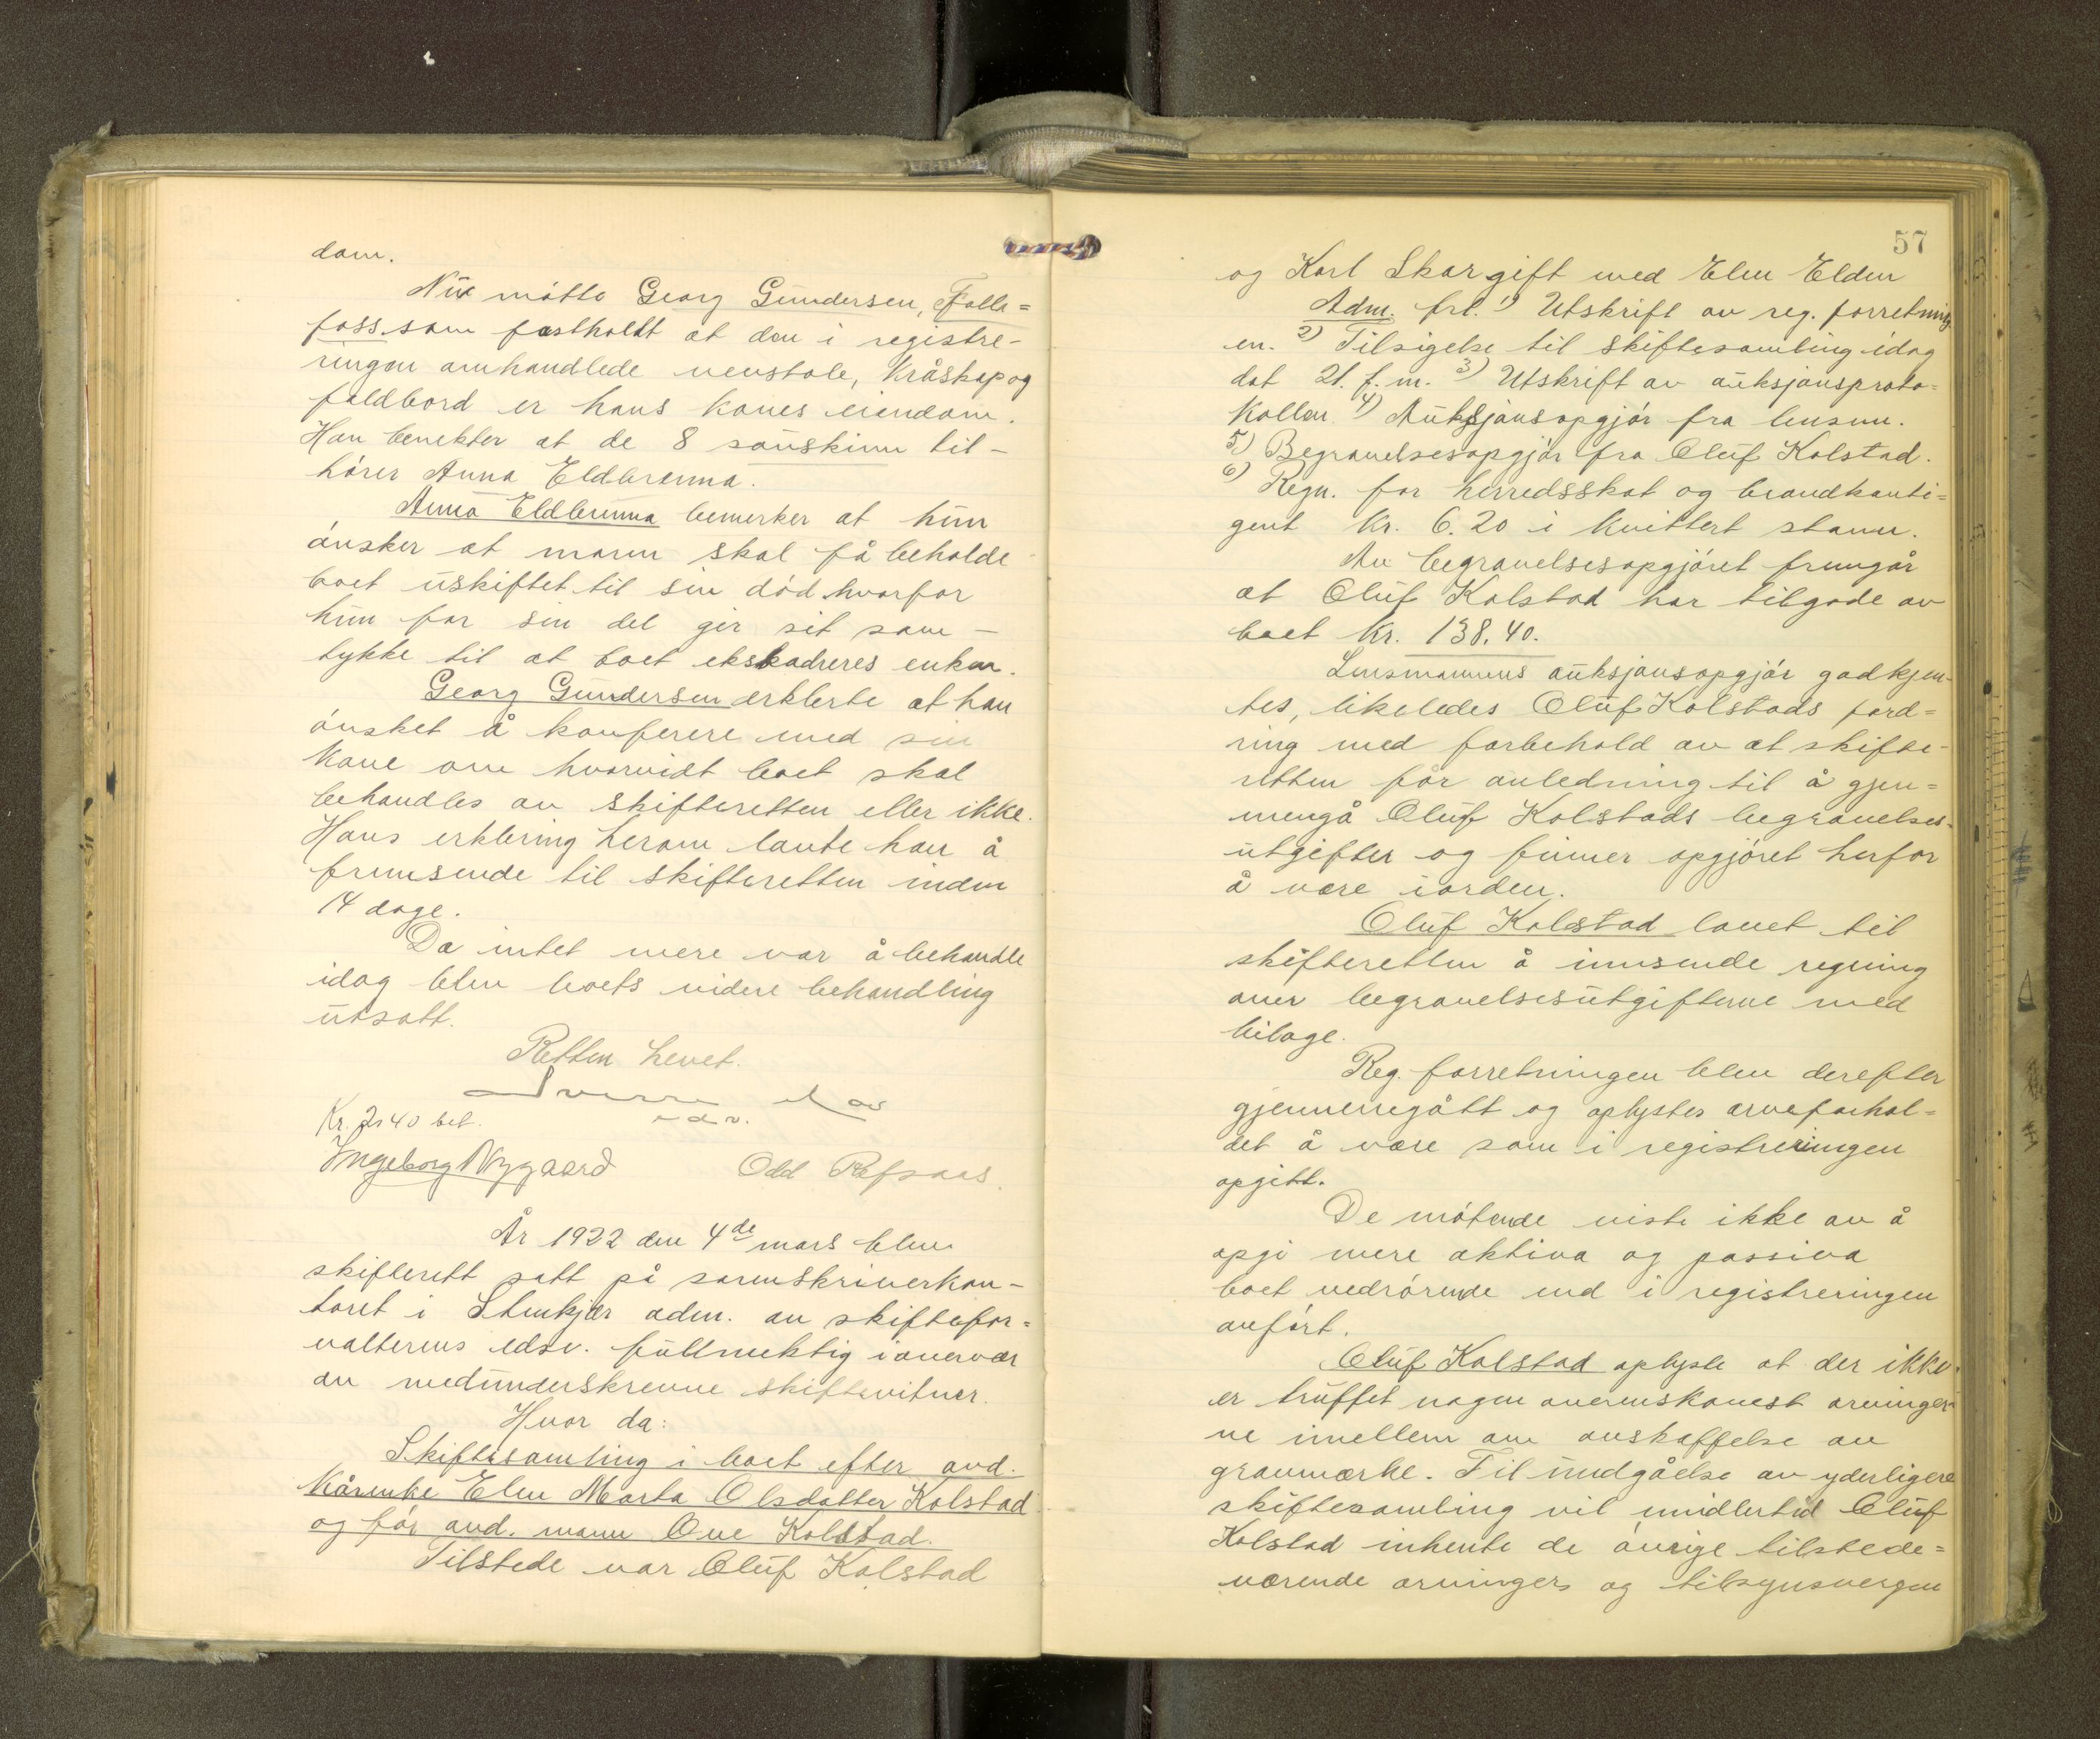 dom.
Nu møtte Georg Gundersen, Folla=
foss som fastholdt at den i registre-
ringen omhandlede vevstole, kråskap og
foldbord er hans kones eiendom.
Han benekter at de 8 sauskinn til-
hører Anna Eldbrenna.
Anna Eldbrenna bemerker at hun
ønsker at mann skal få beholde
boet uskiftet til sin død hvorfor
hun for sin del gir sit sam-
tykke til at boet ekstraderes enken.
Georg Gundersen erklerte at han
ønsket å konferere med sin
kone om hvorvidt boet skal
behandles av skifteretten eller ikke.
Hans erklering herom lovte han å
fremsende til skifteretten inden
14 dage.
Da intet mere var å behandle
idag blev boets videre behandling
utsatt.
Retten hevet.
edsv.
Kr. 7,40 bet.
Ingeborg Nygaard Odd Refsaas.
År 1922 den 4de mars blev
skifterett satt på sorenskriverkon-
toret i Stenkjær adm. av skiftefor=
valterens edsv. fullmektig i overvær
av medunderskrevne skiftevitner.
Hvor da:
Skiftesamling i boet efter avd.
kårenke Elen Marta Olsdatter Kolstad
og før avd. mann Ove Kolstad.
Tilstede var Oluf Kolstad
57
og Karl Skar gift med Elen Elden
Adm. frl. 1) Utskrift av reg. forretning
en. 2) Tilsigelse til skiftesamling idag
dat 21. f. m. 3) Utskrift av auksjonsproto=
kollen 4) Auksjonsopgjør fra lensm.
5) Begravelsesopgjør fra Oluf Kolstad.
6) Regn. for herredsskat og brandkonti=
gent kr. 6.20 i kvittert stann.
Av begravelsesopgjøret fremgår
at Oluf Kolstad har tilgode av
boet kr. 138.40.
Lensmannens auksjonsopgjør godkjen-
tes, likeledes Oluf Kolstads ford=
ring med forbehold av at skifte-
retten får anledning til å gjen=
nemgå Oluf Kolstads begravelses-
utgifter og finner opgjøret herfor
å være iorden.
Oluf Kolstad lovet til
skifteretten å innsende regning
over begravelsesutgifterne med
bilage.
Reg. forretningen blev derefter
gjennemgått og oplystes arveforhol=
det å være som i registreringen
opgitt.
De møtende viste ikke av å
opgi mere aktiva og passiva
boet vedrørende end i registreringen
anført.
Oluf Kolstad oplyste at der ikke
er truffet nogen overenskomst arvinger-
ne imellem om anskaffelse av
gravmærke. Til undgåelse av yderligere
skiftesamling vil imidlertid Oluf
Kolstad inhente de øvrige tilstede=
værende arvingers og tilsynsvergen